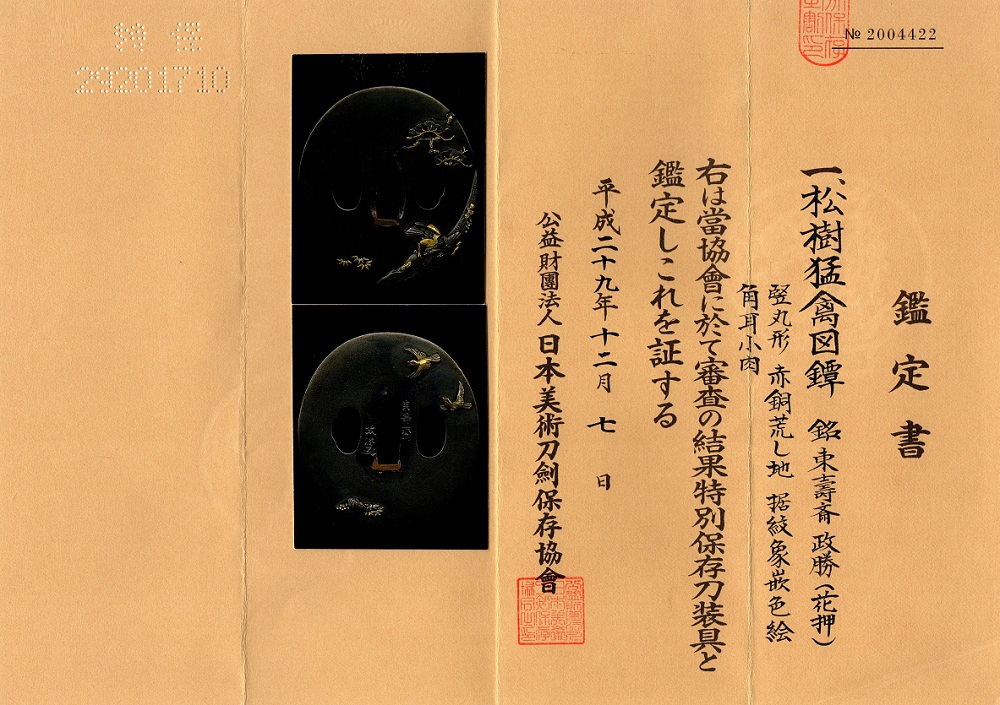 № 2004422
鑑定書
一、松樹猛禽図鐔 銘 東壽斎政勝(花押)
竪丸形 赤銅荒し地 据紋象嵌色絵
角耳小肉
右は當協會に於て審査の結果特別保存刀装具と
鑑定しこれを証する
平成二十九年十二月七日
公益財團法人 日本美術刀劍保存協會
特保
29201710